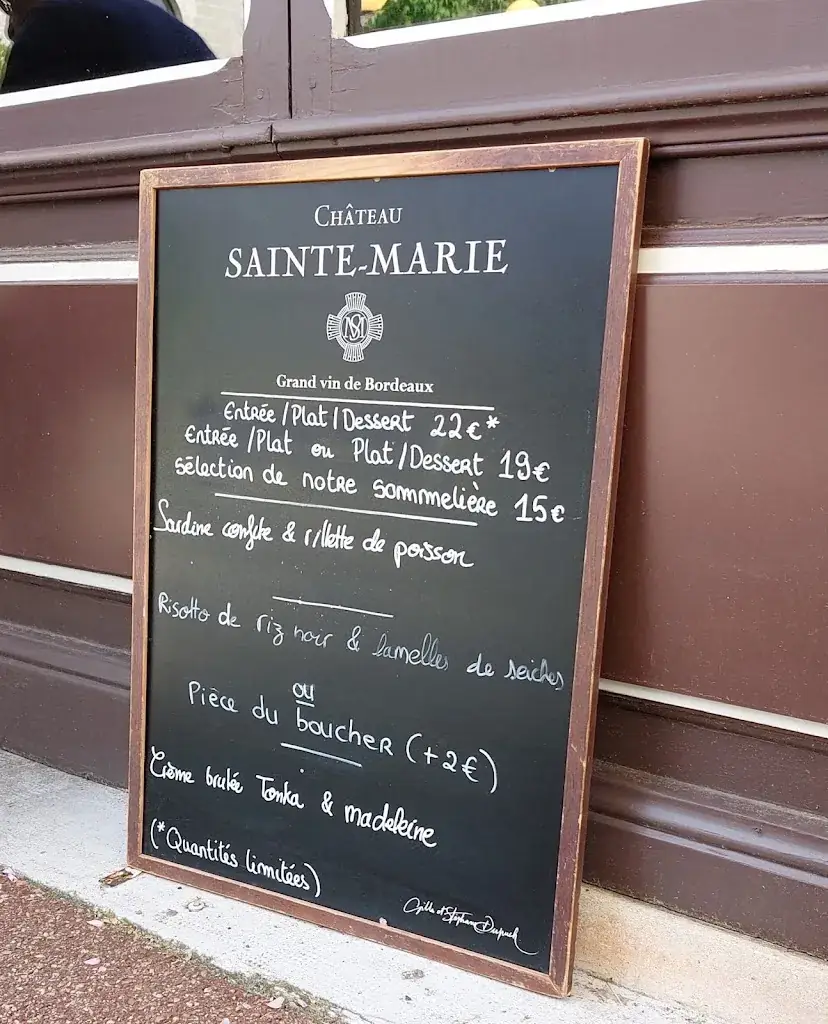 CHÂTEAU
SAINTE-MARIE
SM
Grand vin de Bordeaux
Entrée/Plat/Dessert 22€*
Entrée/Plat ou Plat/Dessert 19€
sélection de notre sommelière 15€
Sardine confite & rillette de poisson
Risotto de riz noir & lamelles de seiches
ou
Pièce du boucher (+2€)
Crème brulée Tonka & madeleine
(*Quantités limitées)
Gilles et Stéphane Dupuch